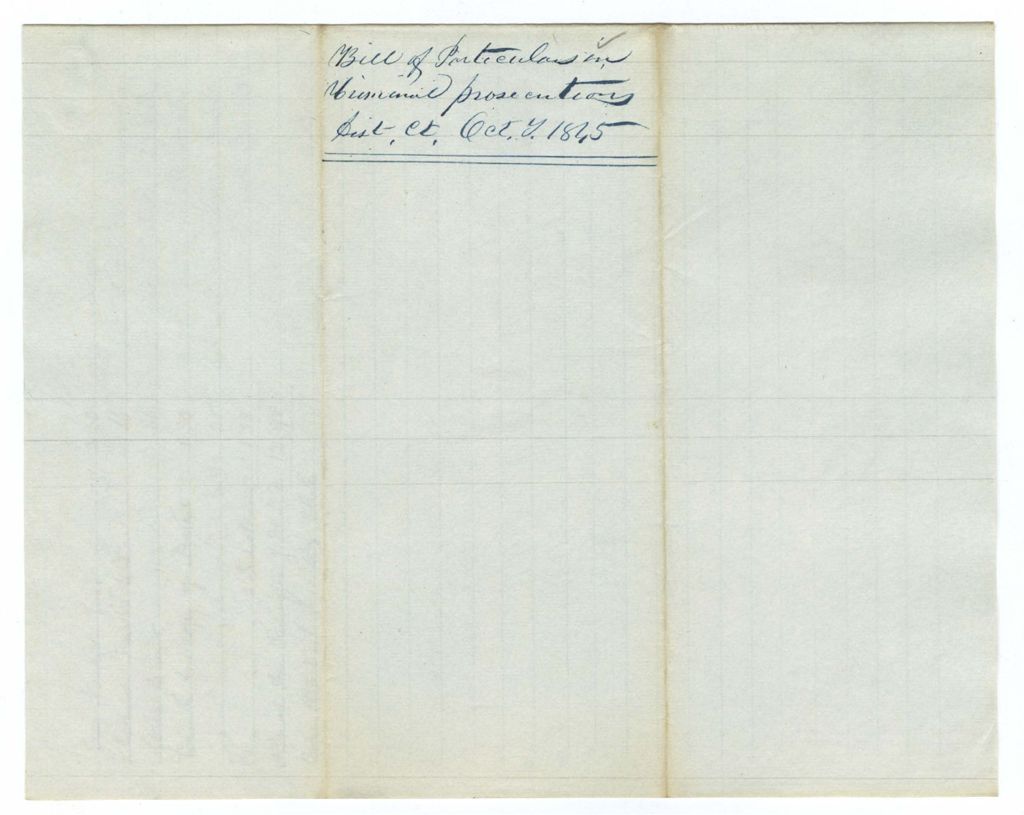 Bill of Particulars in
Criminal prosecutions
Dist. Ct. Oct. T. 1865